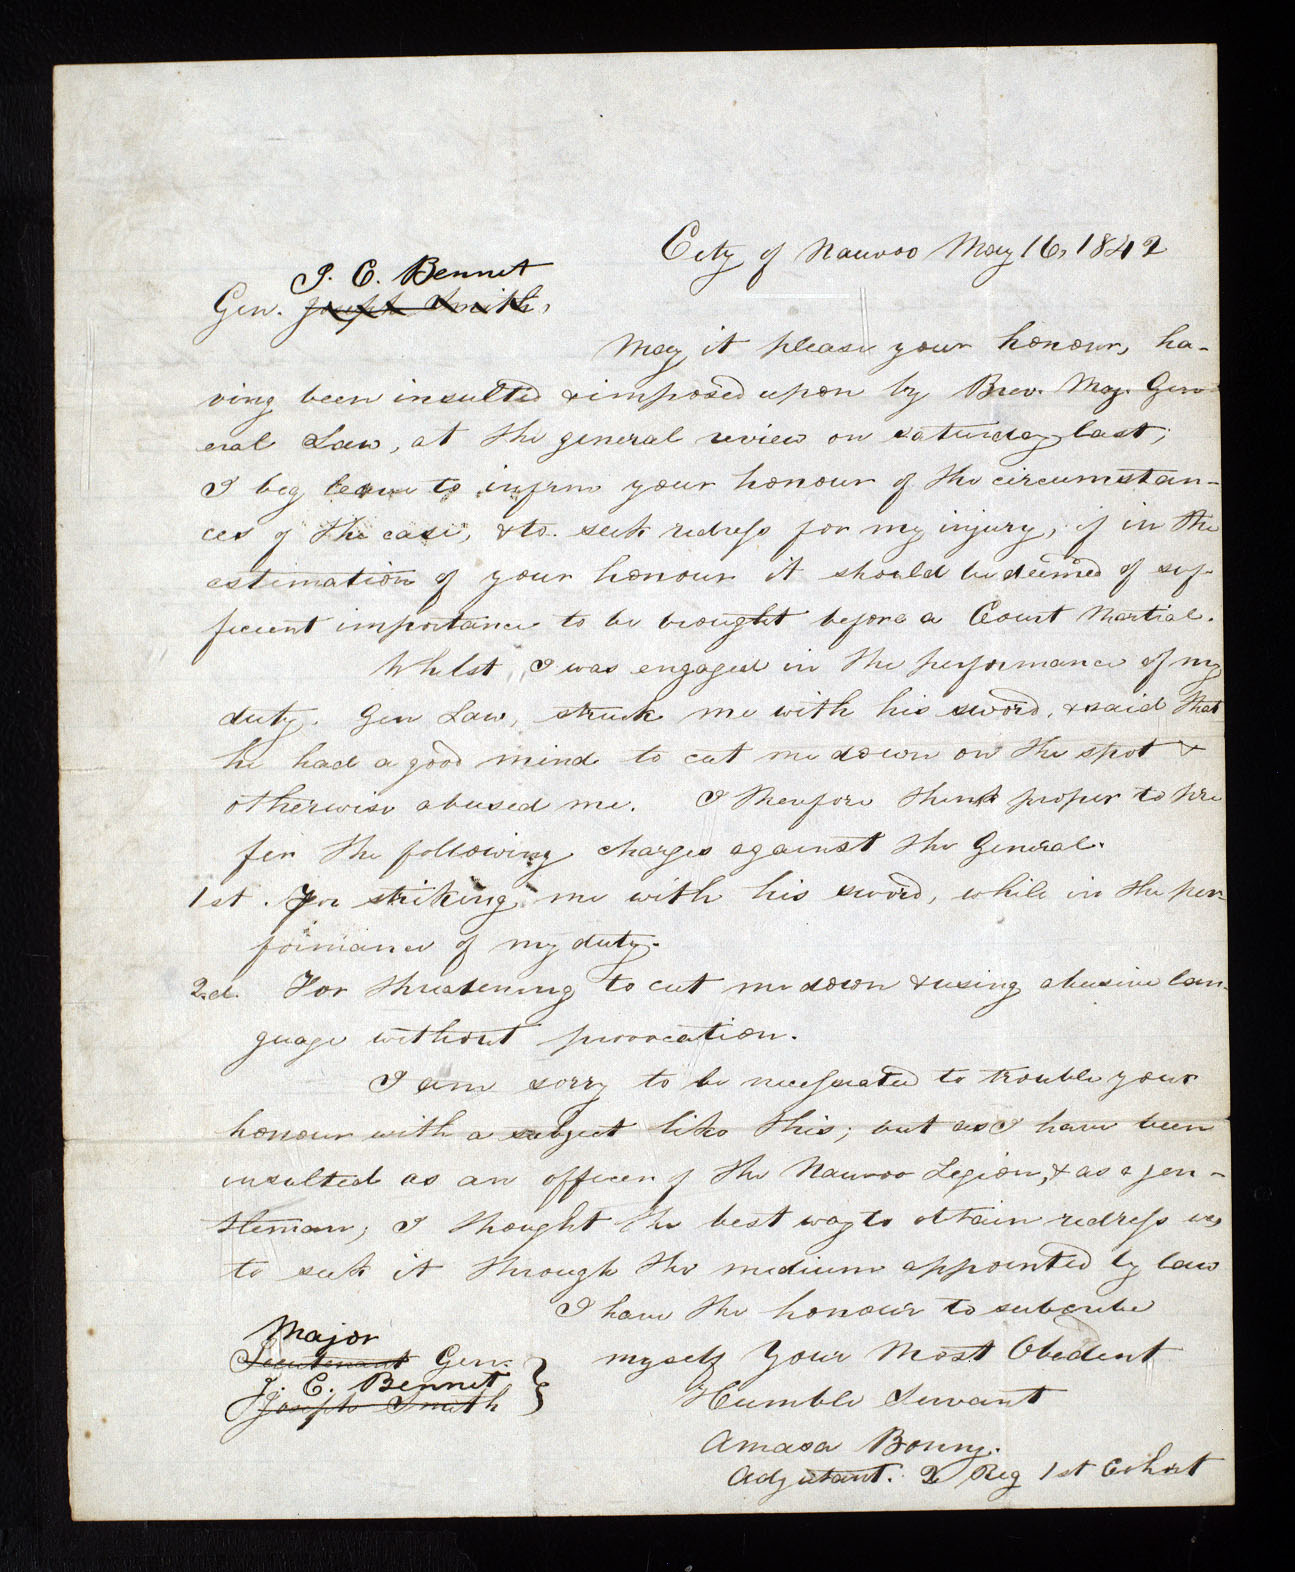 City of Nauvoo May 16, 1842
J. C. Bennet
Gen. Joseph Smith,
May it please your honour, ha-
ving been insulted & imposed upon by Brev. Maj. Gen-
eral Law, at the general review on saturday last;
I beg leave to infrm your honour of the circumstan-
ces of the case, & to seek redress for my injury, if in the
estimation of your honour it should be deemed of suf-
ficient importance to be brought before a Court Martial.
Whilst I was engaged in the performance of my
duty. Gen Law, struck me with his sword, & said that
he had a good mind to cut me down on the spot &
otherwise abused me. I therefore think proper to pre
fer the following charges against the General.
1st. For striking me with his sword, while in the per-
formance of my duty.
2.d. For threatening to cut me down & using abusive lan-
guage without provocation.
I am sorry to be necessiated to trouble your
honour with a subject like this; but as I have been
insulted as an officer of the Nauvoo Legion, & as a gen-
tleman, I thought the best way to obtain redress was
to seek it through the medium appointed by law
I have the honour to subcribe
Major
Lieutenant Gen.
J. C. Bennet
Joseph Smith
myself Your Most Obedent
Humble Servant
Amasa Bonny.
Adjutant. 2 Reg 1st Cohort